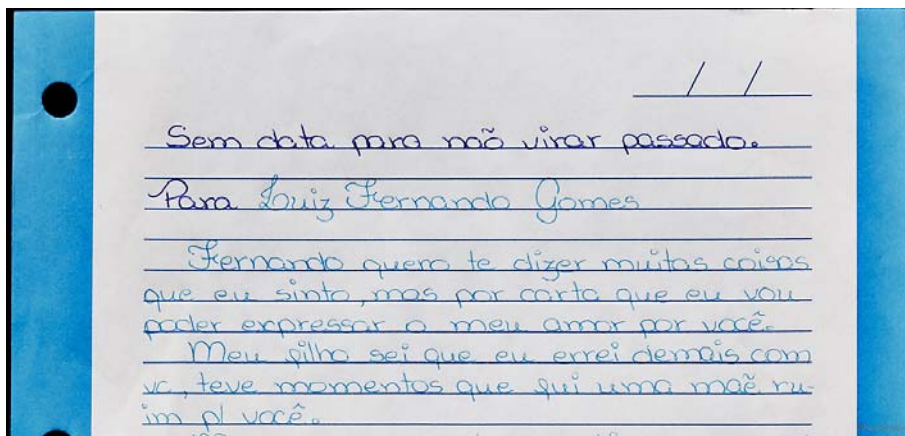 / /
Sem data para não virar passado.
Para Luiz Fernando Gomes
Fernando quero te dizer muitas coisas
que eu sinto, mas por carta que eu vou
poder expressar o meu amor por você.
Meu filho sei que eu errei demais com
vc, teve momentos que fui uma maẽ ru-
im p/ você.